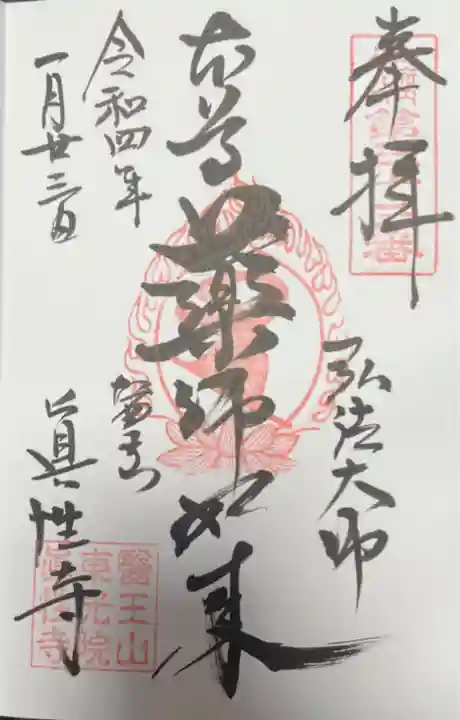 奉拝
弘法大師
本尊薬師如来
令和四年
一月廿三日
眞性寺
醫王山
東光院
眞性寺